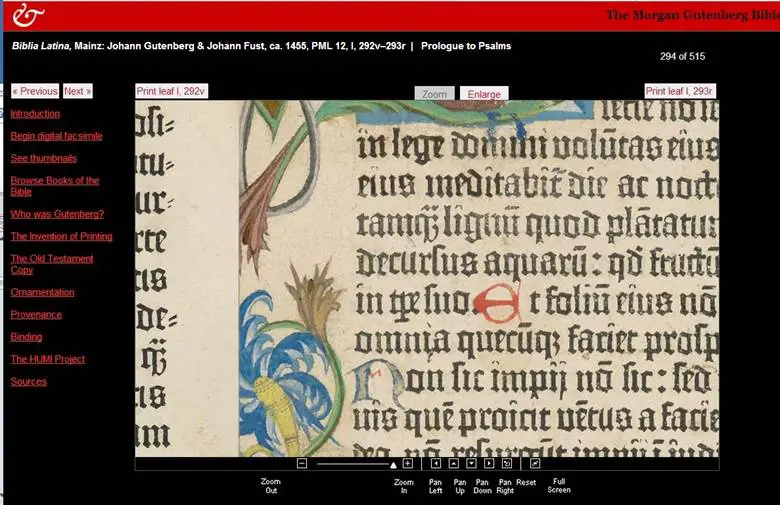 The Morgan Gutenberg Bible
Biblia Latina, Mainz: Johann Gutenberg & Johann Fust, ca. 1455, PML 12, I, 292v–293r | Prologue to Psalms
294 of 515
« Previous Next »
Print leaf I, 292v
Zoom Enlarge
Print leaf I, 293r
Introduction
Begin digital facsimile
See thumbnails
Browse Books of the
Bible
Who was Gutenberg?
The Invention of Printing
The Old Testament
Copy
Ornamentation
Provenance
Binding
The HUMI Project
Sources
tu=
ur=
rte
tis
de=
qꝫ
tis
am
in lege domini volūtas eius
eius meditabit̄ die ac noct
tamqꝫ lignū quod plātatur
decursus aquarū: qd̄ fructū
in tp̄e suo. Et foliū eius nō
omnia quecūqꝫ faciet prosp
Non sic impij nō sic: sed
uis quē proicit vētus a facie
nō resurgūt impij ī iudi
Zoom Out
Zoom In
Pan Left
Pan Up
Pan Down
Pan Right
Reset
Full Screen